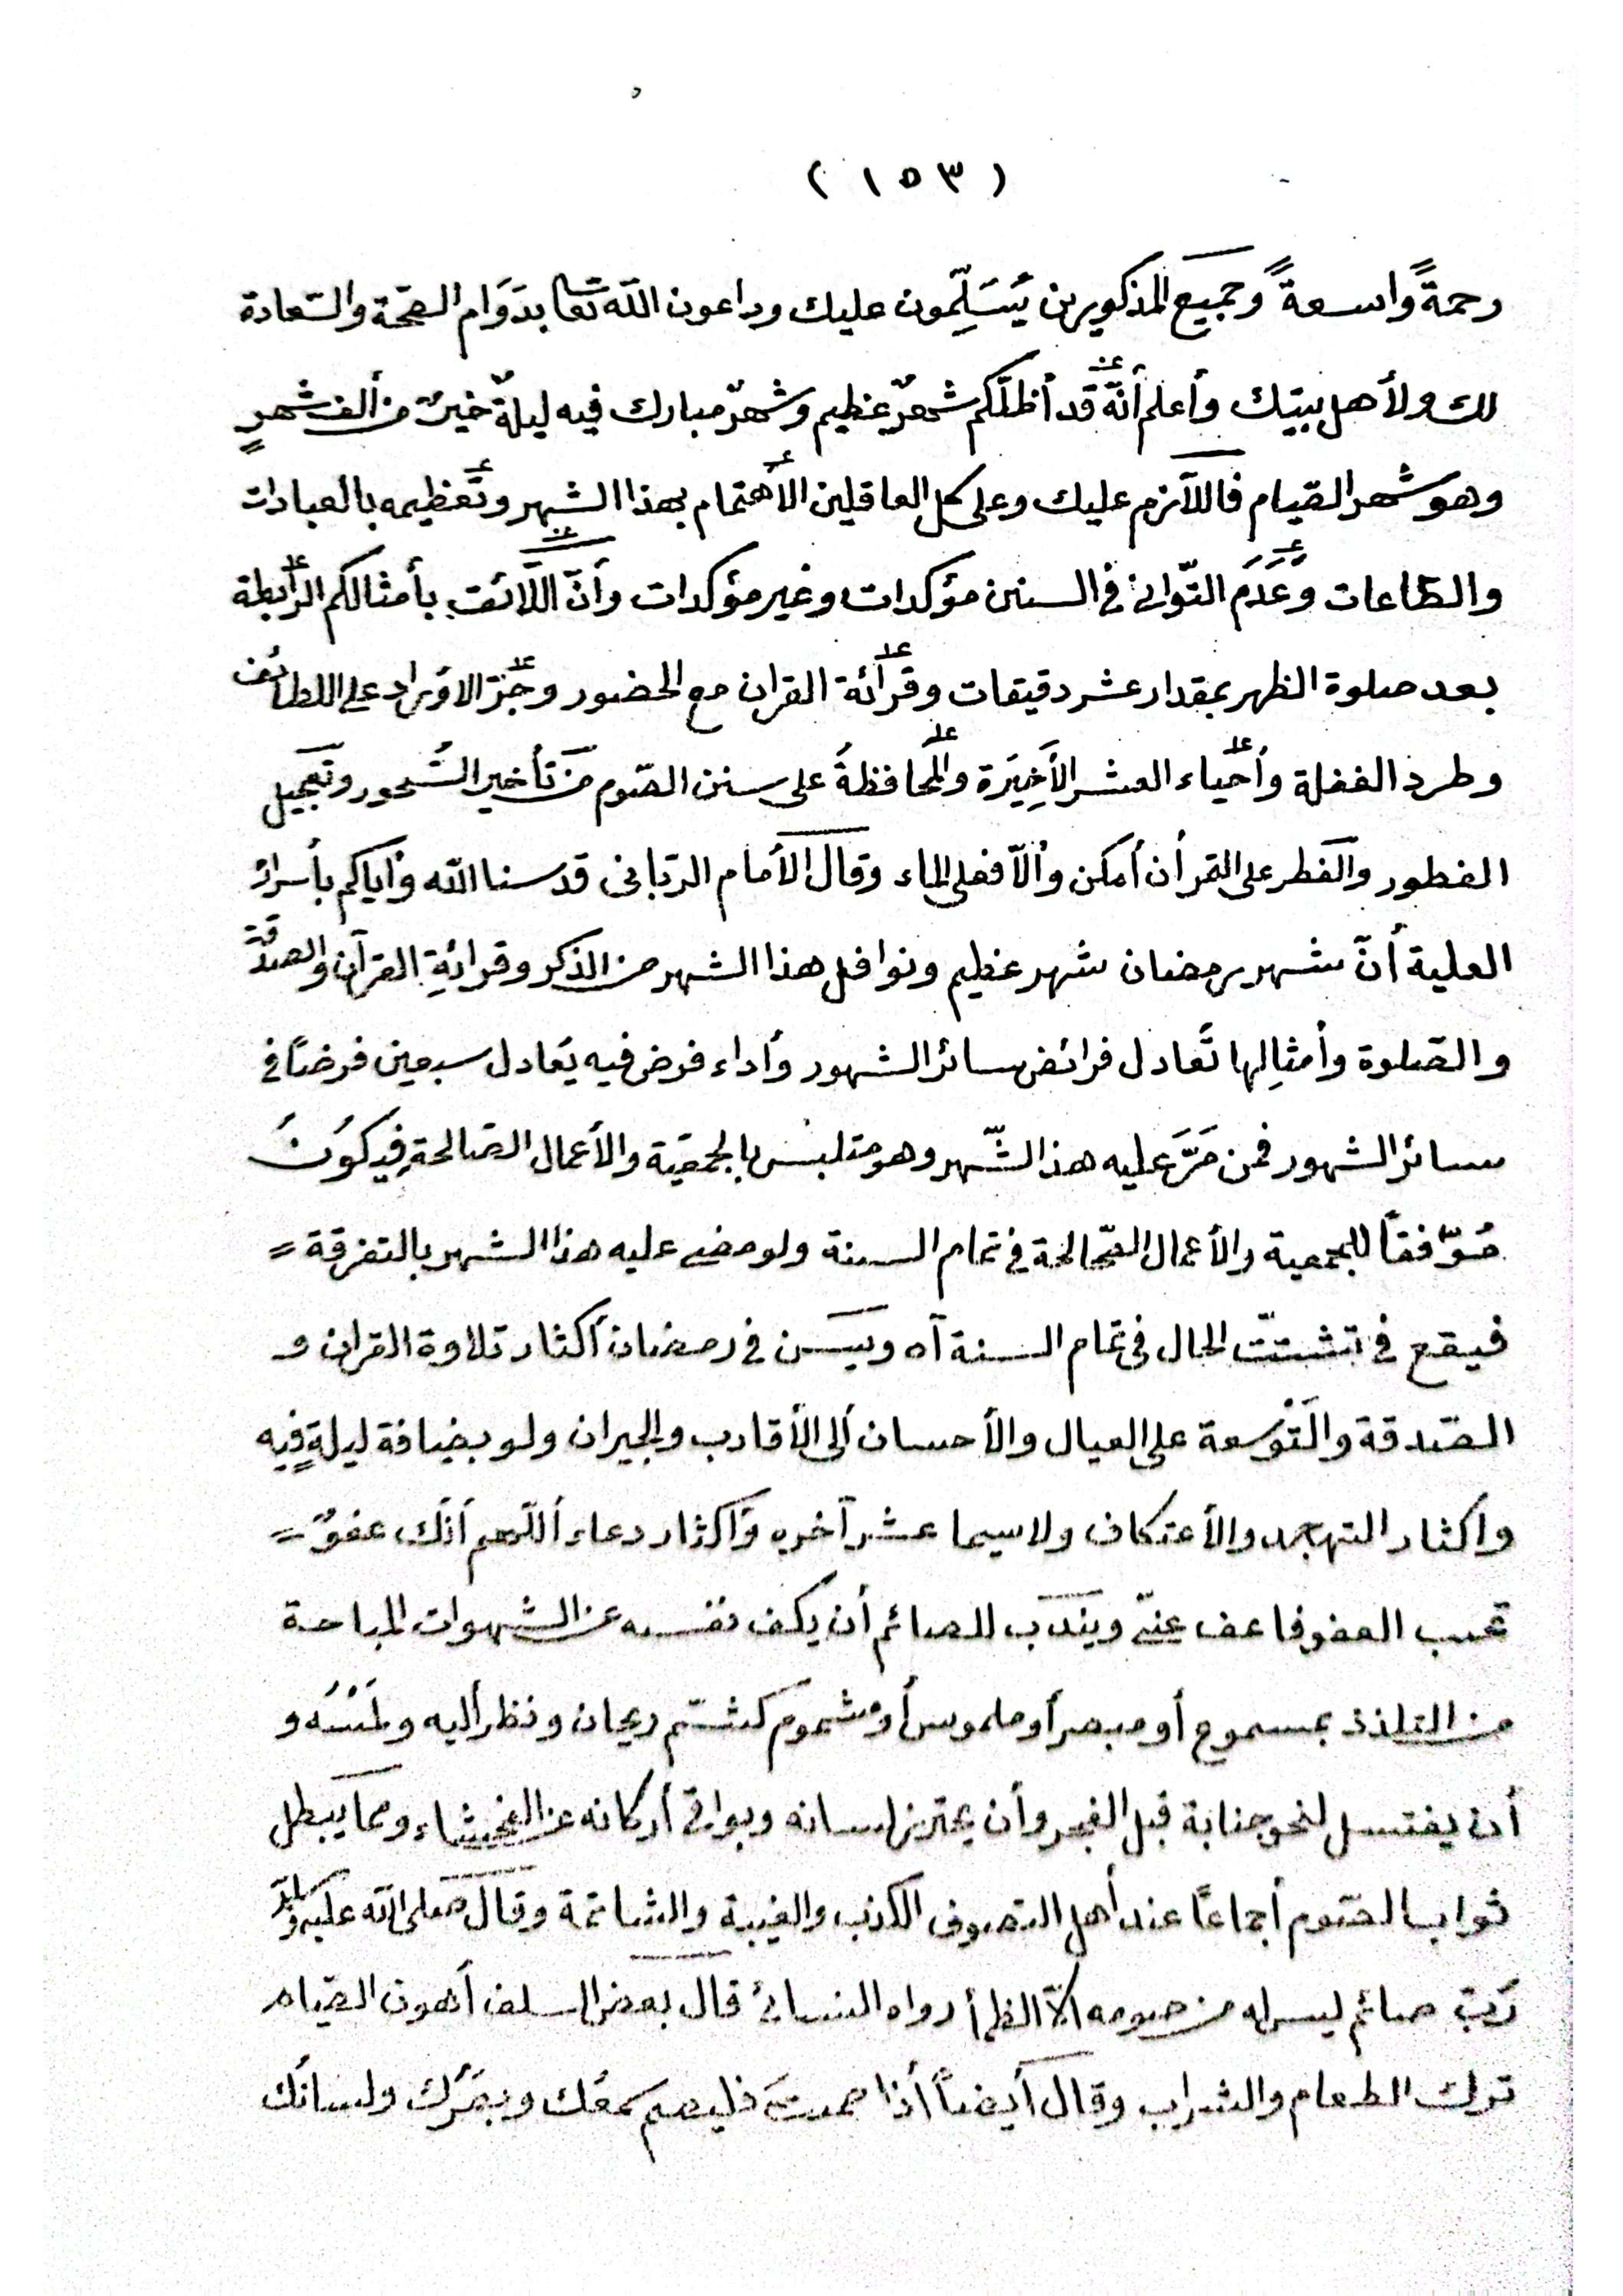 ( ١٥٣ )
رحمةً واسعةً وجَميَع المذكورين يُسَلِّمون عليك وداعون الله تعا بدَوَام الصحّة والسّعادة
لك ولأهل بيتك وأعلم أنّه قد أظلّكم شهرٌ عظيم وشهرٌ مبارك فيه ليلةٌ خيرٌ من ألف شهرٍ
وهو شهر القيام فاللاّزم عليك وعلى كل العاقلين الأهتمام بهذا الشهر وتَعظيمه بالعبادات
والطاعات وعَدَمَ التّوانى فى السنن مؤكدات وغير مؤكدات وأنّ اللاّئق بأمثالكم الرّابطة
بعد صلوة الظهر بمقدار عشر دقيقات وقرأئة القران مع الحضور و الاوراد على اللطائف
وطرد الغفلة وأحياء العشر الأَخِيَرة والمحافظةُ على سنن الصّوم من تأخير السُّحور وتعجيل
الفطور والفطر على التمر أن أمكن وألاّ فعلى الماء وقال الأمام الربّانى قدسنا الله وأياكم بأسراره
العلية أنّ شهر رمضان شهر عظيم ونوافل هذا الشهر من الذكر وقرائةِ القرآن والصدقة
والصّلوة وأمثالِها تَعادل فرائض سائر الشهور وأداء فرض فيه يَعادل سبعين فرضاً فى
سائر الشهور فمن مَرَّ عليه هذ الشّهر وهو متلبس بالجمعيّة والأعمال الصّالحة فيكوُنُ
مُوّفقاً للجمعية والأعمال الصّالحة فى تمام السنة ولو مضى عليه هذا الشهر بالتفرقة =
فيقع فى تشتتّ الحال فى تمام السنة آه ويَسن فى رمضان أكثار تلاوة القران و
الصّدقة والتَوْسعة على العيال والأحسان ألى الأقارب والجيران ولو بضيافة ليلةٍ فيه
واكثار التهجد والأعتكاف ولا سيما عشر آخره وَاكثار دعاء أللّهم أنّك عفوٌ =
تحب العفو فاعف عنىّ ويندَب للصائم أن يكف نفسه عن الشهوات المباحة
من التلذذ بمسموع أو مبصر أو ملموس أو مشموم كشمّ ريحان ونظر أليه ولمَسْهُ و
أن يغتسل لنحو جنابة قبل الفجر وأن يحترز لسانه وبواقى أركانه عن الفحشاء ومما يبطل
ثواب الصّوم أجماعاً عند أهل التصوف الكذب والغيبة والمشاتمة وقال صلى الله عليه وسلم
رُبّ صائم ليس له من صومه ألاّ الظمأ رواه النسائ قال بعض السلف أهون الصّيام
ترك الطعام والشراب وقال أيضاً أذا صمتَ فليصم سمعُك وبصَرُك ولسانُك